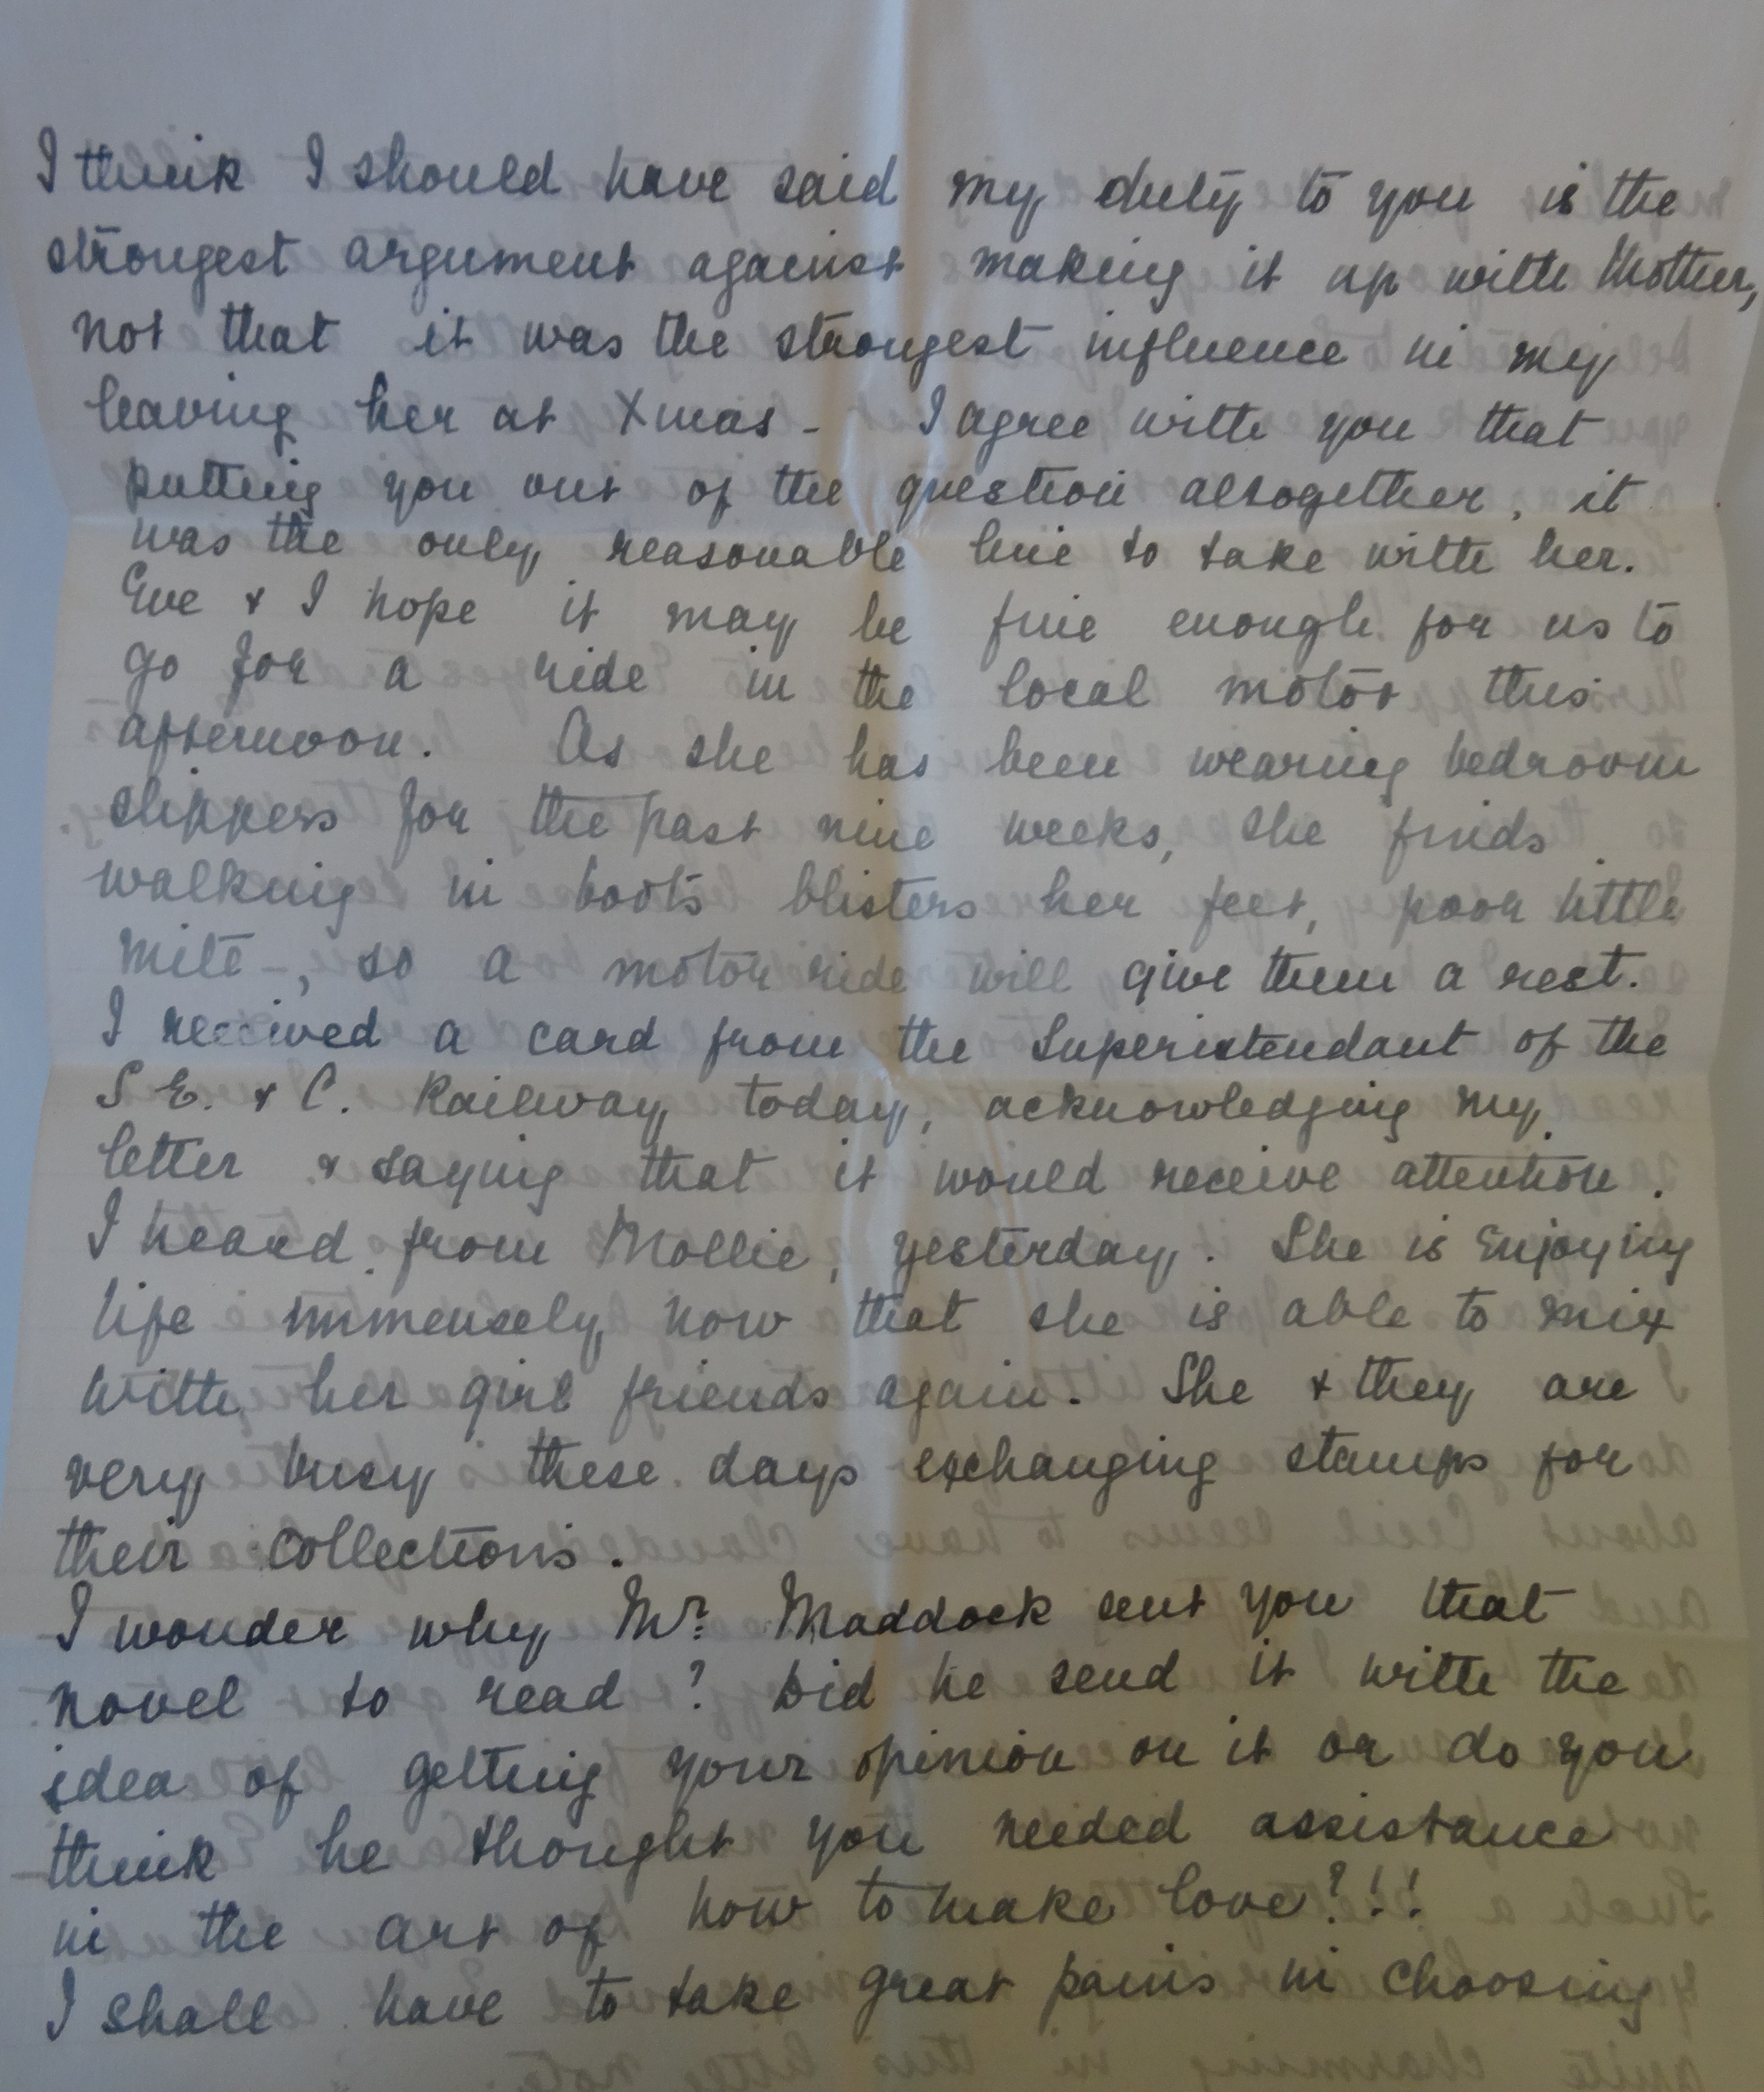 I think I should have said my duty to you is the
strongest argument against making it up with Mother,
not that it was the strongest influence in my
leaving her at Xmas - I agree with you that
putting you out of the question altogether, it
was the only reasonable line to take with her.
Eve & I hope it may be fine enough for us to
go for a ride in the local motor this
afternoon. As she has been wearing bedroom
slippers for the past nine weeks, she finds
walking in boots blisters her feet, poor little
mite -, so a motor ride will give them a rest.
I received a card from the Superistendant of the
S E. & C. Railway today, acknowledging my
letter & saying that it would receive attention.
I heard from Mollie, yesterday. She is enjoying
life immensely now that she is able to mix
with her girl friends again. She & they are
very busy these days exchanging stamps for
their collections.
I wonder why Mr. Maddock sent you that
novel to read? Did he send it with the
idea of getting your opinion on it or do you
think he thought you needed assistance
in the art of how to make love?!!
I shall have to take great pains in choosing